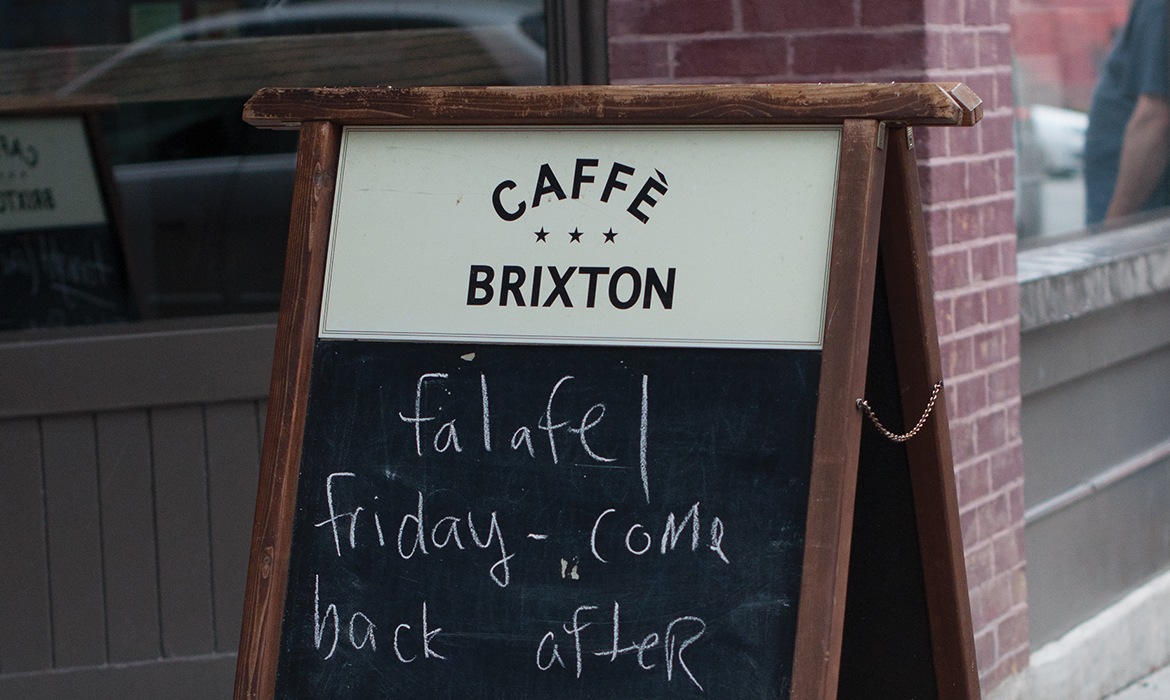 CAFFÈ
BRIXTON
falafel
friday - come
back after